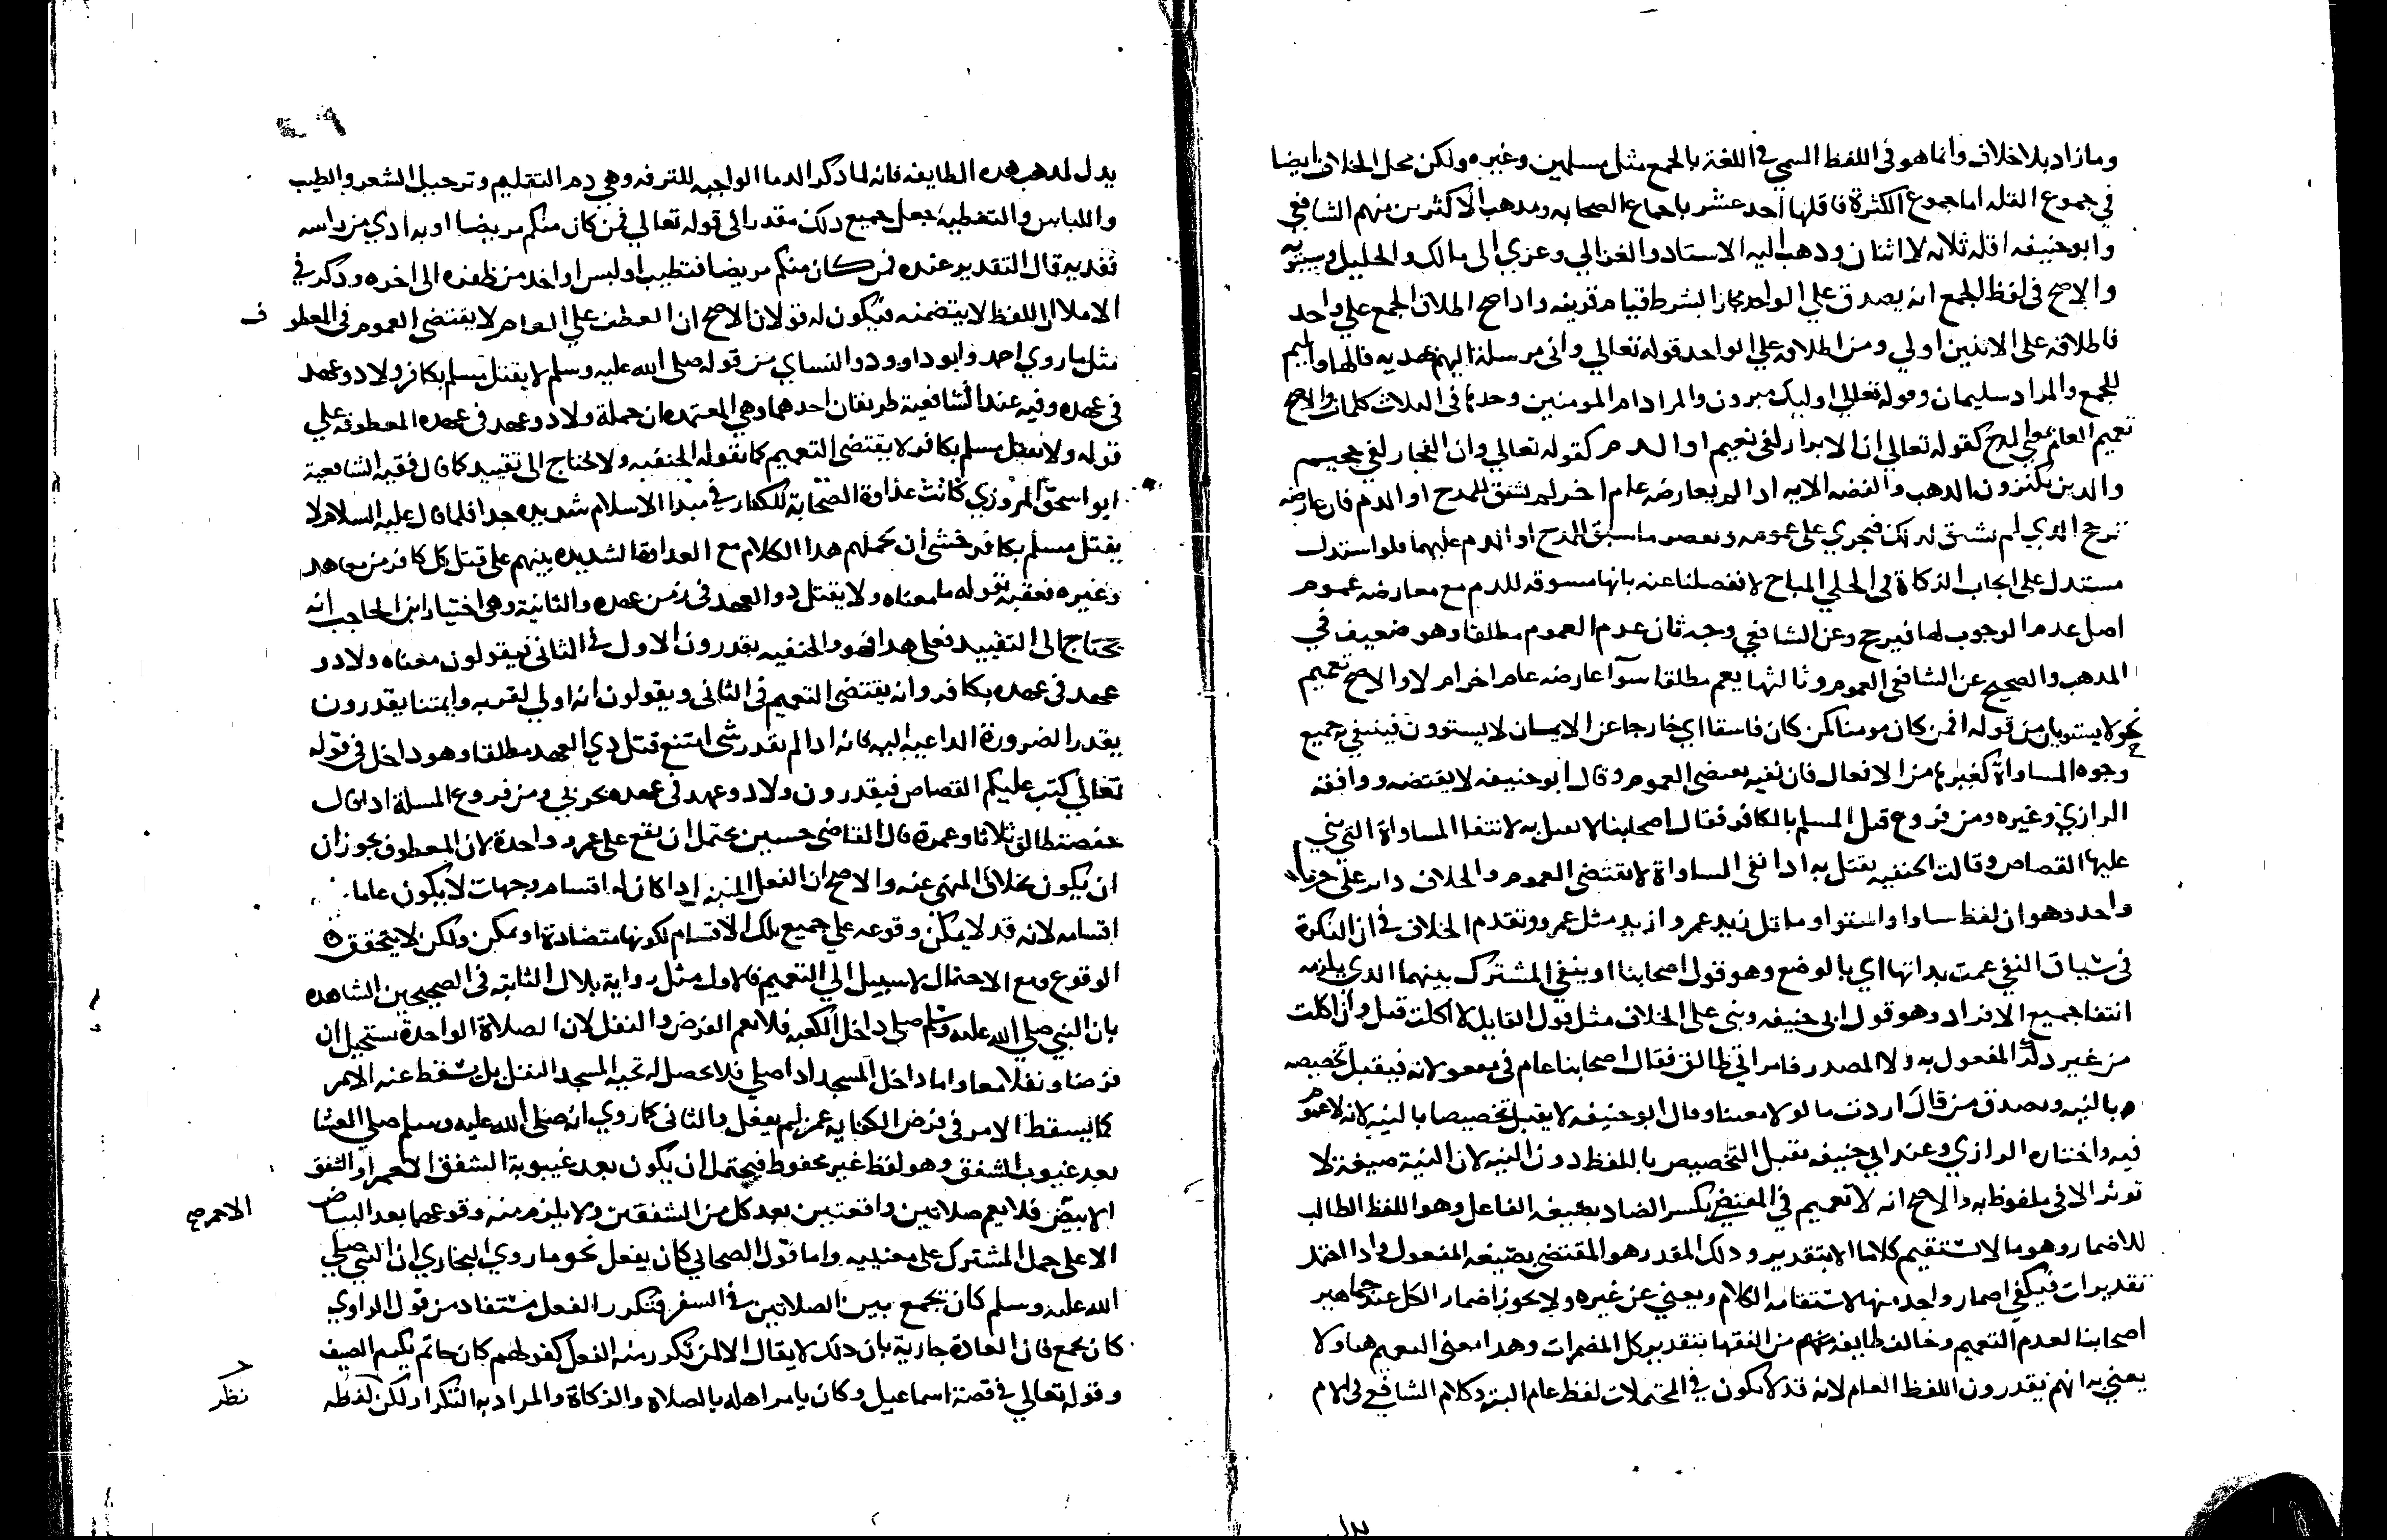 وما زاد بلا خلاف وانما هو في اللفظ المسمي في اللغة بالجمع مثل مسلمين وغيره ولكن محل الخلاف ايضا
في جموع القله اما جموع الكثرة فاقلها احد عشر باجماع الصحابه ومدهب الاكثرين منهم الشافعي
وابو حنيفه اقله ثلاثه لا اثنان ودهب اليه الاستاد والغزالي وعزي الى مالك والخليل وسيبويه
والاصح في لفظ الجمع انه يصدق علي الواحد مجازا بشرط قيام قرينه وادا صح اطلاق الجمع علي واحد
فاطلاقه على الاثنين اولي ومن اطلاقه علي الواحد قوله تعالي واني مرسلة اليهم بهديه فالها واليم
للجمع والمراد سليمان وقوله تعالي اوليك مبرون والمراد ام المومنين وحدها في الثلاث كلمات والاصح
تعميم العام بمعني المدح كقوله تعالي ان الابرار لفي نعيم او الدم كقوله تعالي وان الفجار لفي جحيم
والدين يكنزون الدهب والفضه الايه ادا لم يعارضه عام اخر لم يسق للمدح او الدم فان عارضه
ترجح الدي لم يسق لدلك فيجري على عمومه ونقصر ما سبق للمدح او الدم عليهما فلو استدل
مستدل على ايجاب الزكاة في الحلي المباح لانفصلنا عنه بانها مسوقه للدم مع معارضه عموم
اصل عدم الوجوب لها فيرجح وعن الشافعي وجه ثان عدم العموم مطلقا وهو ضعيف في
المدهب والصحيح عن الشافعي العموم وثالثها يعم مطلقا سوآ عارضه عام اخر ام لا والاصح تعميم
نحو لا يستويان من قوله افمن كان مومنا كمن كان فاسقا اي خارجا عن الايمان لا يستوون فينتفي به جميع
وجوه المساواة كغيرها من الافعال فان نفيه يقتضي العموم وقال ابو حنيفه لا يقتضه ووافقه
الرازي وغيره ومن فروع قتل المسلم بالكافر فقال اصحابنا لا يقتل به لانتفا المساواة التي بني
عليها القصاص وقالت الحنفيه يقتل به ادا نفي المساواة لا يقتضي العموم والخلاف داير على حرف
واحد وهو ان لفظ ساوا واستوا وماثل زيد عمر وازيد مثل عمرو وتقدم الخلاف في ان النكرة
في سياق النفي عمت بداتها اي بالوضع وهو قول اصحابنا او ينفي المشترك بينهما الدي يلزمه
انتفا جميع الافراد وهو قول ابي حنيفه وبني على الخلاف مثل قول القايل لا اكلت قيل وان اكلت
من غير دكر المفعول به ولا المصدر فامراتي طالق فقال اصحابنا عام في مفعولاته فيقبل تخصيصه
بالنيه ويصدق من قال اردت ماكولا معينا وقال ابو حنيفه لا يقبل تخصيصا بالنيه لانه لا عموم
فيه واختاره الرازي وعند ابي حنيفه تقبل التخصيص باللفظ دون النيه لان النية ضعيفة لا
توثر الا في ملفوظ به والاصح انه لا تعميم في المقتضي بكسر الضاد بصيغه الفاعل وهو اللفظ الطالب
للاضمار وهو ما لا يستقيم كلاما الا بتقدير ودلك المقدر هو المقتضي بصيغه المفعول فادا احتمل
تقديرات فيكفي اضمار واحد منها لاستقامه الكلام ويغني عن غيره ولا يجوز اضمار الكل عند جماهير
اصحابنا لعدم التعميم وخالف طايفه منهم من الفقها بتقدير كل المضمرات وهدا معني التعميم هنا ولا
يعني به انهم يقدرون اللفظ العام لانه قد لا يكون في المحتملات لفظ عام البته وكلام الشافعي في الام
يدل لمدهب هده الطايفه فانه لما دكر الدما الواجبه للترفه وهي دم التقليم وترجيل الشعر والطيب
واللباس والتغطيه جعل جميع دلك مقدرا في قوله تعالي فمن كان منكم مريضا او به ادي من راسه
ففديه قال التقدير عنده فمن كان منكم مريضا فتطيب او لبس او اخد من ظفره الى اخره ودكر في
الاملا ان اللفظ لا يتضمنه فيكون له قولان الاصح ان العطف علي العام لا يقتضي العموم في المعطوف
مثل ما روي احمد وابو داوود والنساي من قوله صلى الله عليه وسلم لا يقتل مسلم بكافر ولا دو عهد
في عهده وفيه عند الشافعية طريقان احدهما وهي المعتمده ان جملة ولا دو عهد في عهده المعطوفه علي
قوله ولا يقتل مسلم بكافر لا يقتضي التعميم كما تقوله الحنفيه ولا تحتاج الى تقييد كما قال فقيه الشافعية
ابو اسحق المروزي كانت عداوة الصحابة للكفار في مبدا الاسلام شديده جدا فلما قال عليه السلام لا
يقتل مسلم بكافر خشى ان تحملهم هدا الكلام مع العداوة الشديده بينهم على قتل كل كافر من معاهد
وغيره فعقبه بقوله ما معناه ولا يقتل دو العهد في زمن عهده والثانية وهي اختيار ابن الحاجب انه
يحتاج الى التقييد فعلي هدا فهو والحنفيه يقدرون الاول في الثاني فيقولون معناه ولا دو
عهد في عهده بكافر وانه يقتضي التعميم في الثاني ويقولون انه اولي لقربه وايمتنا يقدرون
بقدر الضرورة الداعيه اليه فانه ادا لم يقدر شي امتنع قتل دي العهد مطلقا وهو داخل في قوله
تعالي كتب عليكم القصاص فيقدرون ولا دو عهد في عهده بحربي ومن فروع المسلة ادا قال
حفصة طالق ثلاثا وعمرة قال القاضي حسين يحتمل ان يقع على عمرة واحدة لان المعطوف يجوز ان
ان يكون بخلاف المنهي عنه والاصح ان الفعل المثبت ادا كان له اقسام وجهات لا يكون عاما
اقسامه لانه قد لا يمكن وقوعه علي جميع تلك الاقسام لكونها متضادة او يمكن ولكن لا يتحقق
الوقوع ومع الاحتمال لا سبيل الي التعميم فالاول مثل رواية بلال الثابته في الصحيحين الشاهده
بان النبي صلي الله عليه وسلم صلي داخل الكعبه فلا يعم الفرض والنفل لان الصلاة الواحدة يستحيل ان
فرضا ونفلا معا واما داخل المسجد ادا صلي فلا يحصل له تحيه المسجد النفل بل يسقط عنه الامر
كما يسقط الامر في فرض الكفايه عمن لم يفعل والثاني كما روي انه صلى الله عليه وسلم صلي العشا
بعد غيوب الشفق وهو لفظ غير محفوظ فيحتمل ان يكون بعد غيبوبة الشفق الاحمر او الشفق
الاحمر صح
الابيض فلا يعم صلاتين واقعتين بعد كل من الشفقين ولا يلزم منه وقوعهما بعد البياض
الا على حمل المشترك على معنييه واما قول الصحابي كان يفعل نحو ما روي البخاري ان النبي صلي
الله عليه وسلم كان يجمع بين الصلاتين في السفر فتكرر الفعل مستفاد من قول الراوي
كان يجمع فان العادة جارية بان دلك لا يقال الا لمن تكرر منه الفعل كقولهم كان حاتم يكرم الضيف
وقوله تعالي في قصة اسماعيل وكان يامر اهله بالصلاة والزكاة والمراد به التكرار ولكن لفظه
نظر